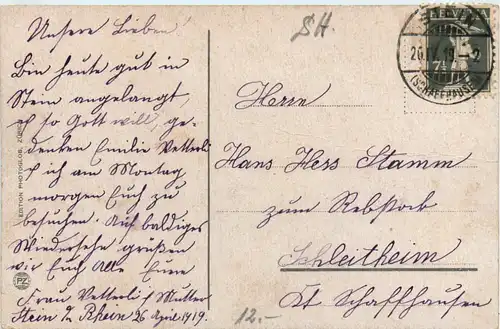 Unsere Lieben!
Bin heute gut in
Stein angelangt,
so Gott will, ge-
denken Emilie Vetterli
& ich am Montag
morgen Euch zu
besuchen. Auf baldiges
Wiedersehn grüßen
wir Euch Alle Eure
Frau Vetterli & Mutter
Stein a/ Rhein 26 April 1919.
SH.
STEIN
26.IV.19
(SCHAFFHAUSEN)
HELVETIA
7½
Herrn
Hans Hess Stamm
zum Rebstock
Schleitheim
Kt Schaffhausen
12.-
EDITION PHOTOGLOB, ZÜRICH
PZ